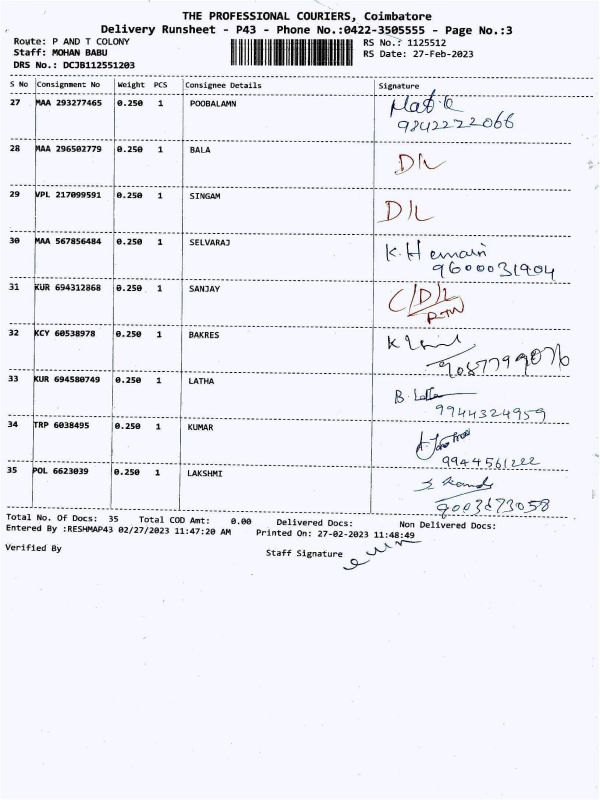 THE PROFESSIONAL COURIERS, Coimbatore
Delivery Runsheet - P43 - Phone No.:0422-3505555 - Page No.:3
Route: P AND T COLONY RS No.: 1125512
Staff: MOHAN BABU RS Date: 27-Feb-2023
DRS No.: DCJB112551203
S No Consignment No Weight PCS Consignee Details Signature
27 MAA 293277465 0.250 1 POOBALAMN
9842222066
28 MAA 296502779 0.250 1 BALA D/L
29 VPL 217099591 0.250 1 SINGAM D/L
30 MAA 567856484 0.250 1 SELVARAJ K. Hemain
9600031904
31 KUR 694312868 0.250 1 SANJAY C/D/L
RTN
32 KCY 60538978 0.250 1 BAKRES
9087799076
33 KUR 694580749 0.250 1 LATHA B. Latha
9944324959
34 TRP 6038495 0.250 1 KUMAR
9944561222
35 POL 6623039 0.250 1 LAKSHMI
9003673058
Total No. Of Docs: 35 Total COD Amt: 0.00 Delivered Docs: Non Delivered Docs:
Entered By :RESHMAP43 02/27/2023 11:47:20 AM Printed On: 27-02-2023 11:48:49
Verified By Staff Signature